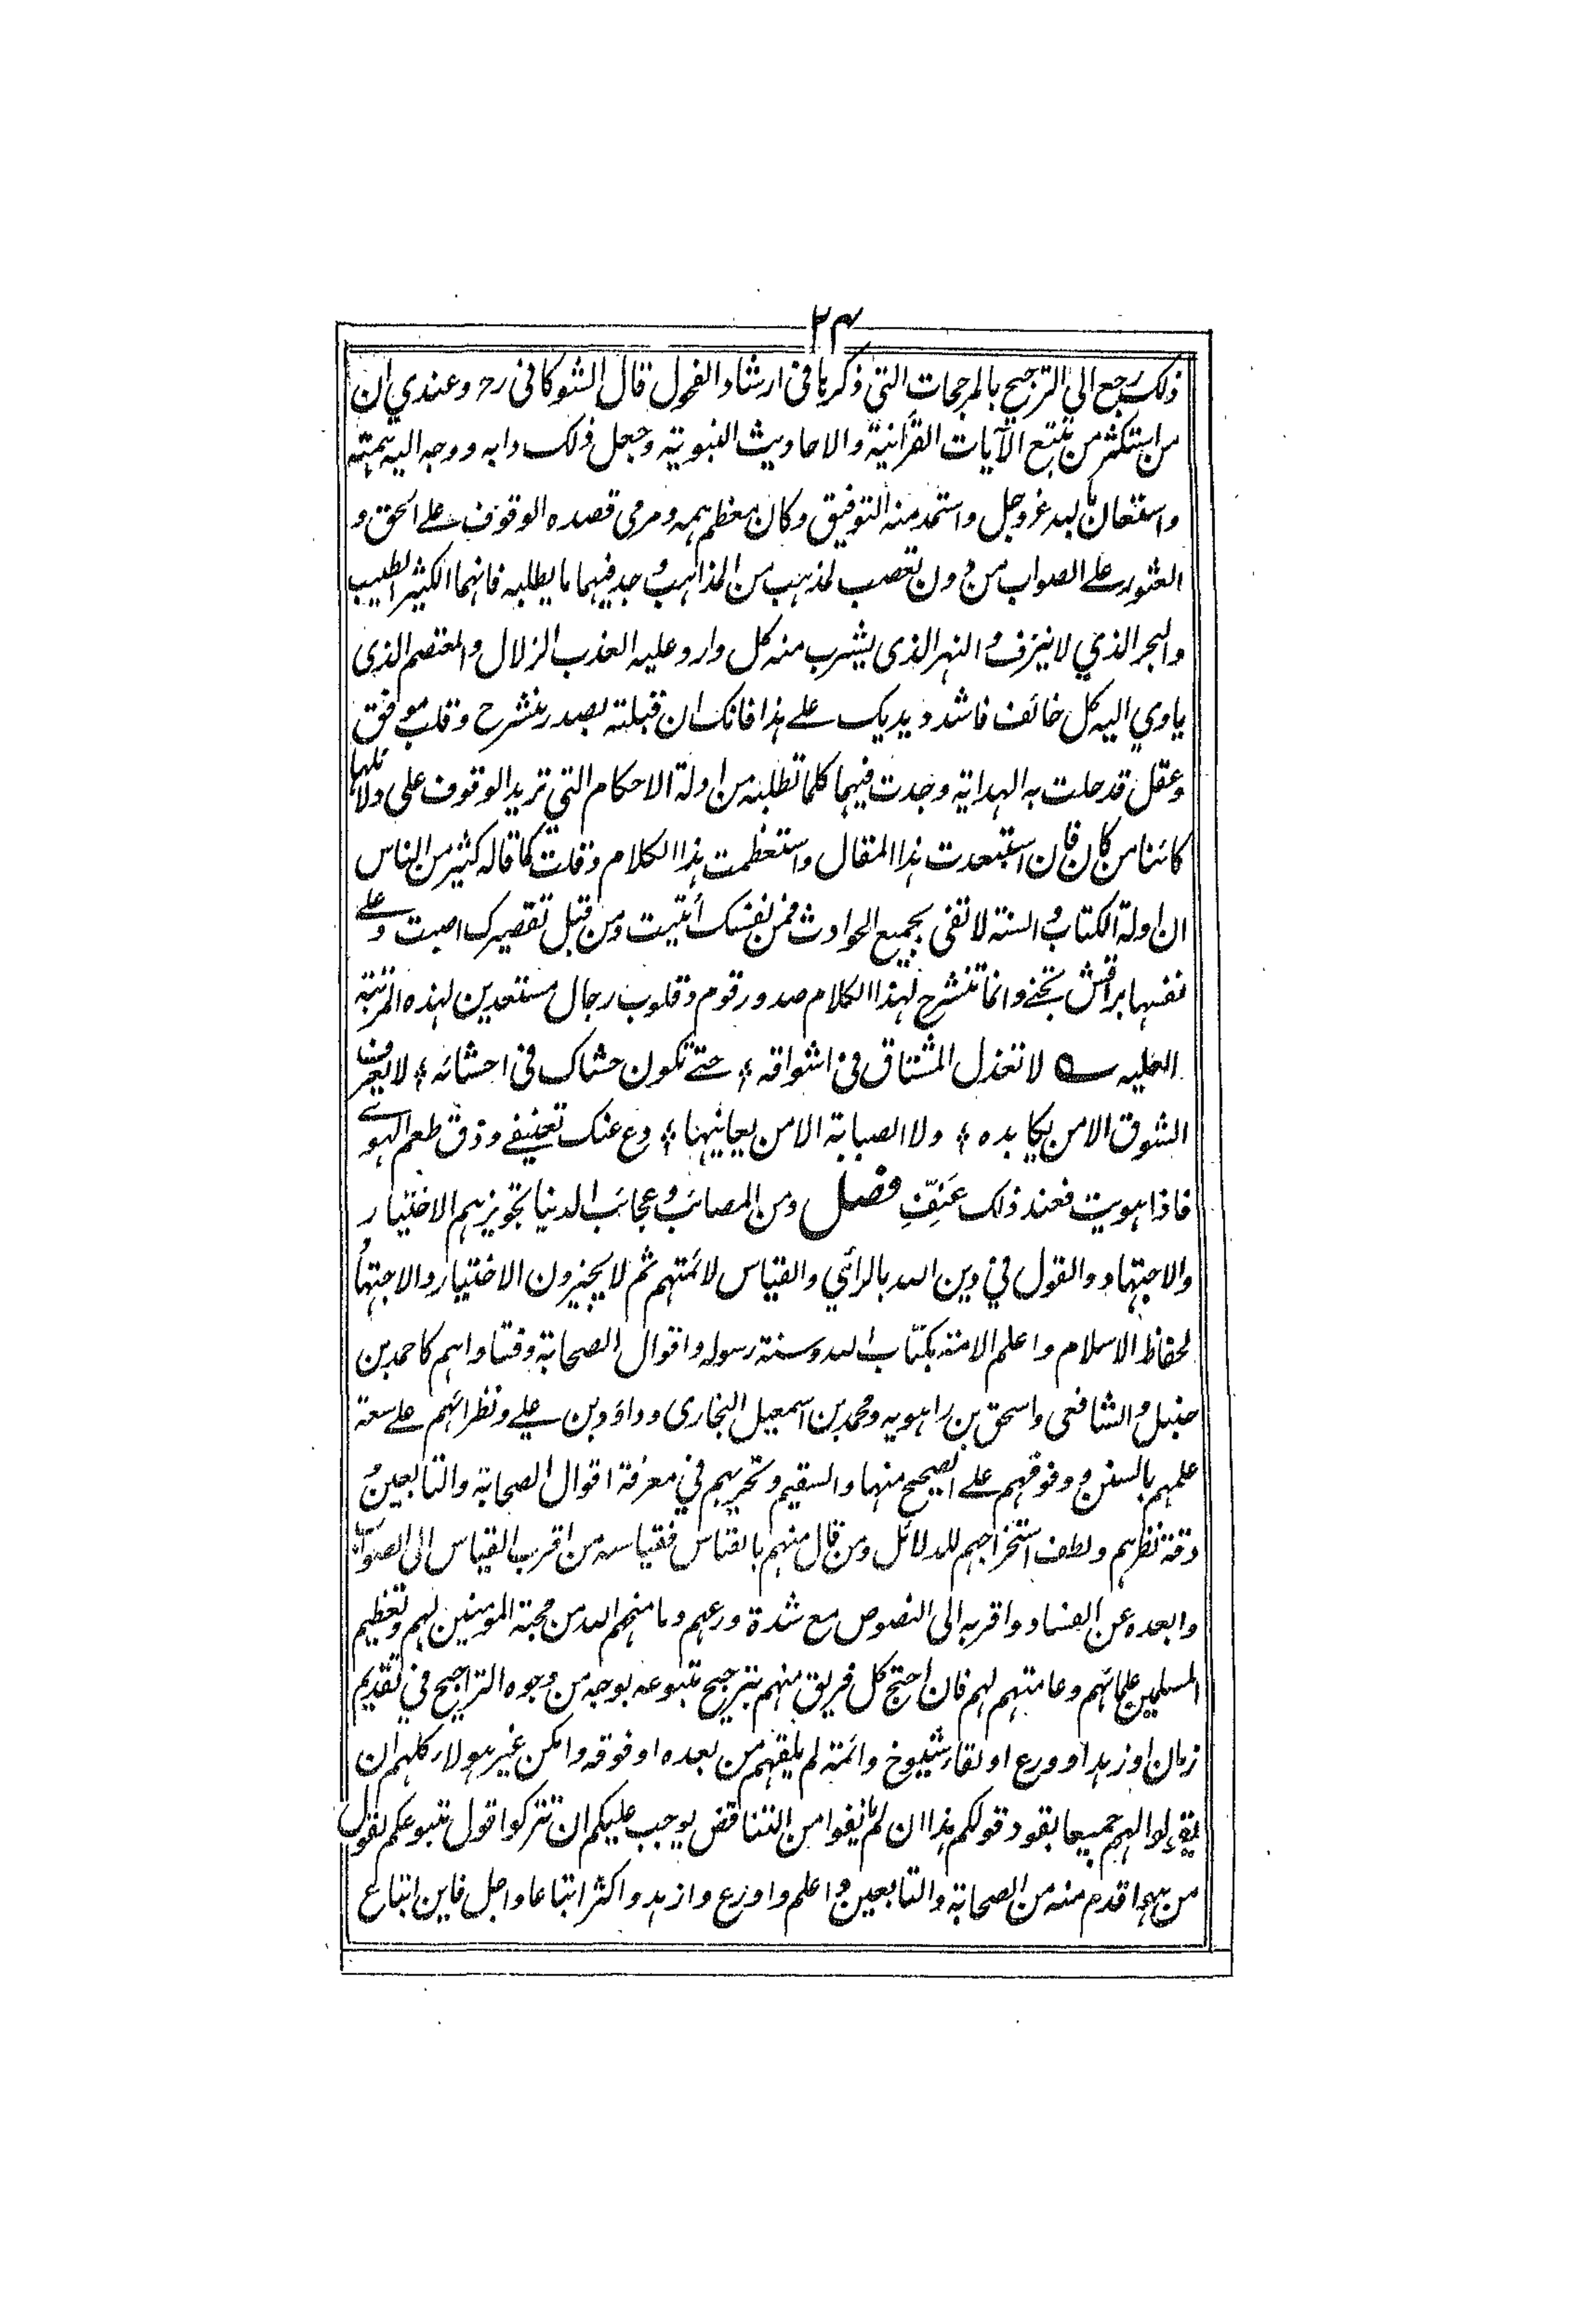 ٢٤
ذلك رجع الي الترجيح بالمرجحات التي ذكرها في ارشاد الفحول قال الشوكاني رح وعندي ان
من استكثر من تتبع الآيات القرآنية والاحاديث النبوية وجعل ذلك دابه ووجه اليه همته
واستعان بالله عز وجل واستمد منه التوفيق وكان معظم همه ومرمى قصده الوقوف على الحق و
العثور على الصواب من دون تعصب لمذهب من المذاهب وجد فيهما ما يطلبه فانهما الكثير الطيب
والبحر الذي لا ينزف والنهر الذي يشرب منه كل وارد عليه العذب الزلال والمعتصم الذي
ياوي اليه كل خائف فاشدد يديك على هذا فانك ان قبلته بصدر منشرح وقلب موفق
وعقل قد حلت به الهداية وجدت فيهما كلما تطلبه من ادلة الاحكام التي تريد الوقوف على دلائلها
كائنا من كان فان استبعدت هذا المقال واستعظمت هذا الكلام وقلت كما قاله كثير من الناس
ان ادلة الكتاب والسنة لا تفي بجميع الحوادث فمن نفسك أتيت ومن قبل تقصيرك اصبت وعلى
نفسها براقش تجني وانما تنشرح لهذا الكلام صدور قوم وقلوب رجال مستعدين لهذه المرتبة
العليه لا تعذل المشتاق في اشواقه ؛ حتى تكون حشاك في احشائه ؛ لا يعرف
الشوق الا من يكابده ؛ ولا الصبابة الا من يعانيها ؛ دع عنك تعنيفي وذق طعم الهوى
فاذا هويت فعند ذلك عَنِّفِ فصل ومن المصائب وعجائب الدنيا تجويزهم الاختيار
والاجتهاد والقول في دين الله بالرأي والقياس لائمتهم ثم لا يجيزون الاختيار والاجتهاد
لحفاظ الاسلام واعلم الامة بكتاب الله وسنة رسوله واقوال الصحابة وفتاواهم كاحمد بن
حنبل والشافعي واسحق بن راهويه ومحمد بن اسمعيل البخاري وداؤد بن علي ونظرائهم على سعة
علمهم بالسنن ووقوفهم على الصحيح منها والسقيم وتحريهم في معرفة اقوال الصحابة والتابعين و
دقة نظرهم ولطف استخراجهم للدلائل ومن قال منهم بالقياس فقياسه من اقرب القياس الى الصواب
وابعده عن الفساد واقربه الى النصوص مع شدة ورعهم وما منحهم الله من محبة المومنين لهم وتعظيم
المسلمين علمائهم وعامتهم لهم فان احتج كل فريق منهم بترجيح متبوعه بوجه من وجوه التراجيح في تقديم
زمان او زهد او ورع او لقاء شيوخ وائمة لم يلقهم من بعده او فوقه وامكن غير هولاء كلهم ان
يقولوا لهم جميعا بقود قولكم هذا ان لم تانفوا من التناقض يوجب عليكم ان تتركوا قول متبوعكم لقول
من هو اقدم منه من الصحابة والتابعين واعلم واورع وازهد واكثر اتباعا واجل فاين اتباع